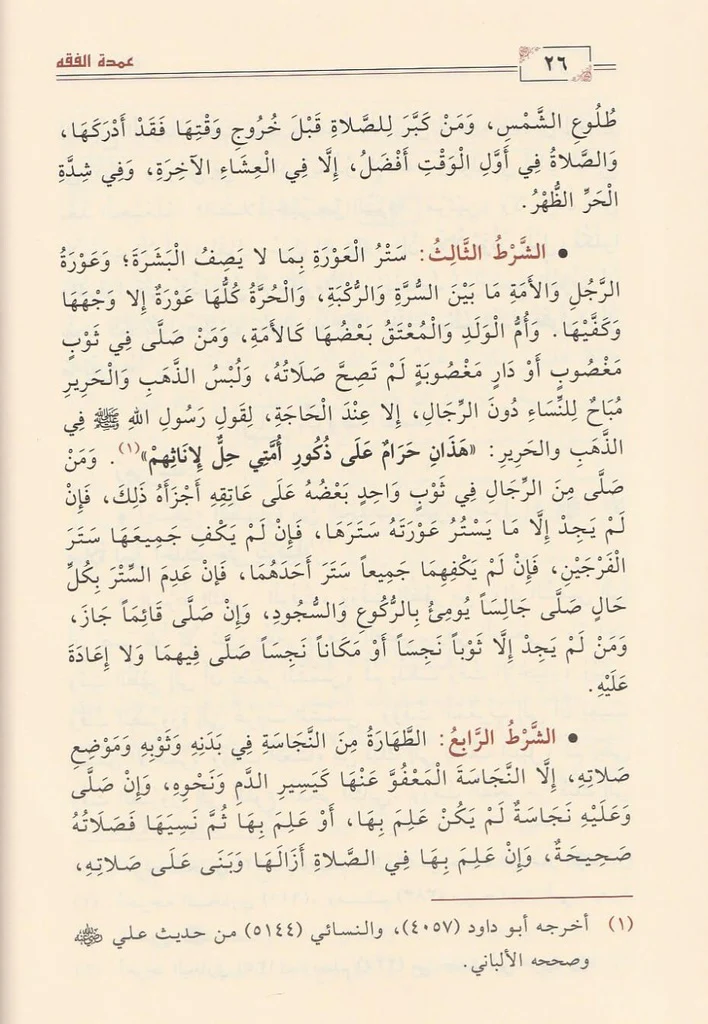 عمدة الفقه
٢٦
طُلُوعِ الشَّمْسِ، وَمَنْ كَبَّرَ لِلصَّلاةِ قَبْلَ خُرُوجِ وَقْتِهَا فَقَدْ أَدْرَكَهَا،
وَالصَّلاةُ فِي أَوَّلِ الْوَقْتِ أَفْضَلُ، إِلَّا فِي الْعِشَاءِ الآخِرَةِ، وَفِي شِدَّةِ
الْحَرِّ الظُّهْرُ.
• الشَّرْطُ الثَّالِثُ: سَتْرُ الْعَوْرَةِ بِمَا لا يَصِفُ الْبَشَرَةَ؛ وَعَوْرَةُ
الرَّجُلِ وَالأَمَةِ مَا بَيْنَ السُّرَّةِ وَالرُّكْبَةِ، وَالْحُرَّةُ كُلُّهَا عَوْرَةٌ إِلا وَجْهَهَا
وَكَفَّيْهَا. وَأُمُّ الْوَلَدِ وَالْمُعْتَقُ بَعْضُهَا كَالأَمَةِ، وَمَنْ صَلَّى فِي ثَوْبٍ
مَغْصُوبٍ أَوْ دَارٍ مَغْصُوبَةٍ لَمْ تَصِحَّ صَلَاتُهُ، وَلُبْسُ الذَّهَبِ وَالْحَرِيرِ
مُبَاحٌ لِلنِّسَاءِ دُونَ الرِّجَالِ، إِلا عِنْدَ الْحَاجَةِ، لِقَولِ رَسُولِ اللهِ ﷺ فِي
الذَّهَبِ والحَرِيرِ: «هَذَانِ حَرَامٌ عَلَى ذُكُورِ أُمَّتِي حِلٌّ لِإنَاثِهِمْ»(١). وَمَنْ
صَلَّى مِنَ الرِّجَالِ فِي ثَوْبٍ وَاحِدٍ بَعْضُهُ عَلَى عَاتِقِهِ أَجْزَأَهُ ذَلِكَ، فَإِنْ
لَمْ يَجِدْ إِلَّا مَا يَسْتُرُ عَوْرَتَهُ سَتَرَهَا، فَإِنْ لَمْ يَكْفِ جَمِيعَهَا سَتَرَ
الْفَرْجَيْنِ، فَإِنْ لَمْ يَكْفِهِمَا جَمِيعاً سَتَرَ أَحَدَهُمَا، فَإنْ عَدِمَ السِّتْرَ بِكُلِّ
حَالٍ صَلَّى جَالِسَاً يُومِئُ بِالرُّكُوعِ وَالسُّجُودِ، وَإِنْ صَلَّى قَائِمَاً جَازَ،
وَمَنْ لَمْ يَجِدْ إِلَّا ثَوْباً نَجِسَاً أَوْ مَكَاناً نَجِسَاً صَلَّى فِيهِمَا وَلا إِعَادَةَ
عَلَيْهِ.
• الشَّرْطُ الرَّابِعُ: الطَّهَارَةُ مِنَ النَّجَاسَةِ فِي بَدَنِهِ وَثَوْبِهِ وَمَوْضِعِ
صَلاتِهِ، إِلَّا النَّجَاسَةَ الْمَعْفُوَّ عَنْهَا كَيَسِيرِ الدَّمِ وَنَحْوِهِ، وَإِنْ صَلَّى
وَعَلَيْهِ نَجَاسَةٌ لَمْ يَكُنْ عَلِمَ بِهَا، أَوْ عَلِمَ بِهَا ثُمَّ نَسِيَهَا فَصَلَاتُهُ
صَحِيحَةٌ، وَإِنْ عَلِمَ بِهَا فِي الصَّلاةِ أَزَالَهَا وَبَنَى عَلَى صَلاتِهِ،
(١) أخرجه أبو داود (٤٠٥٧)، والنسائي (٥١٤٤) من حديث علي رضي الله عنه
وصححه الألباني.